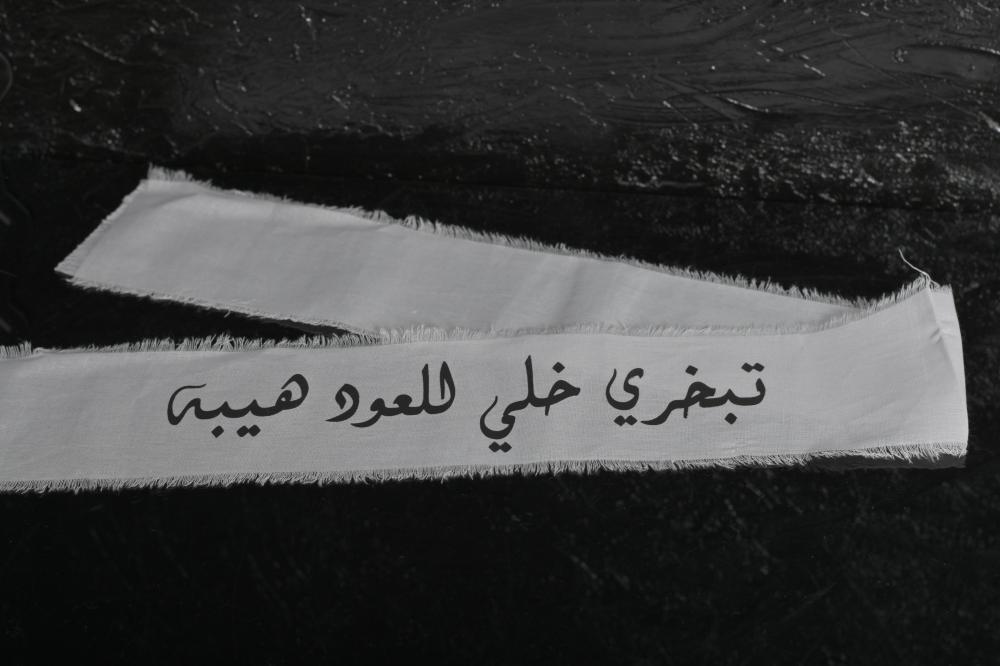 تبخري خلي للعود هيبه